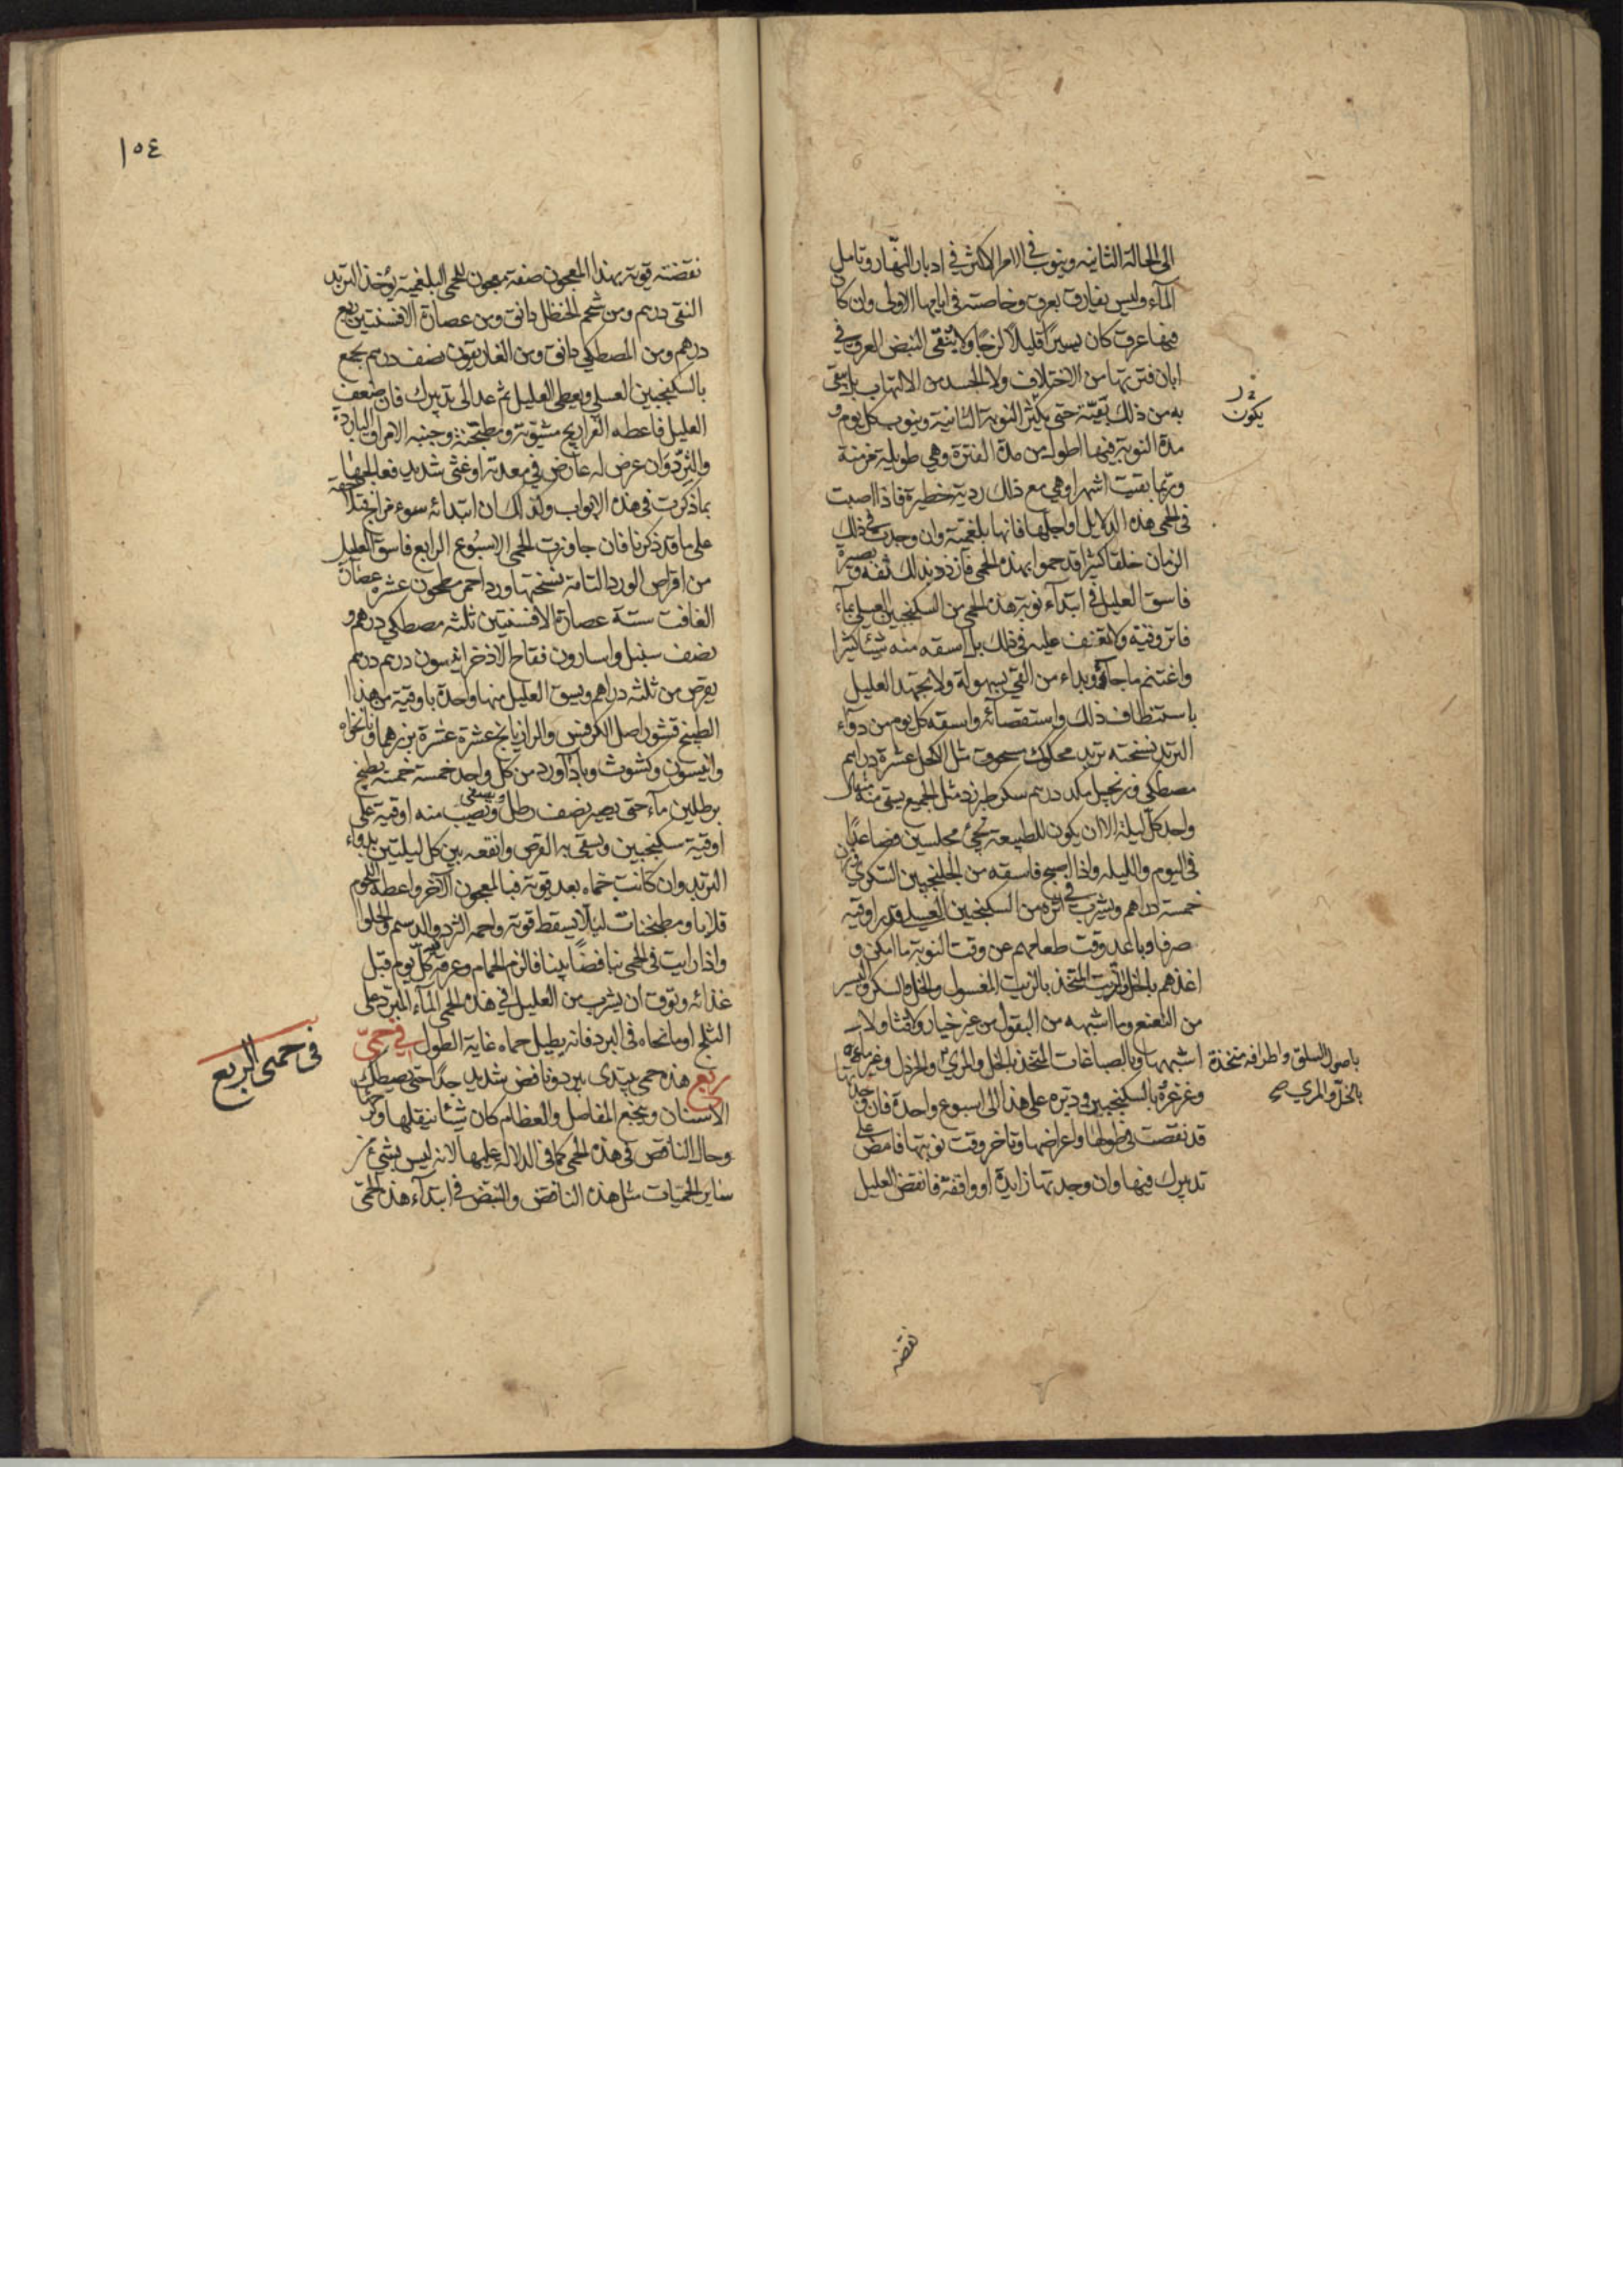 الى الحالة الثانيه وينوب فى الامر الاكثر فى ادبار النهار وتامل
المآء وليس يفارق بعرق وخاصته فى ايامها الاولى وان كان
فيها عرق كان يسيرًا قليلا لزجًا ولا ينقى النبض العرق فى
ابان فترتها من الاختلاف ولا الجسد من الالتهاب بل يبقى
به من ذلك بقيّة حتى يكون النوبة الثانية وينوب كل يوم و
يكون
مدة النوبة فيها اطول من مدة الفترة وهى طويلة مزمنة
وربّما بقيت اشهرا وهى مع ذلك ردية خطيرة فاذا اصبت
فى الحمى هذه الدلايل او اجلّها فانها بلغمية وان وجدت فى ذلك
الزمان خلقا كثيرا قد حموا بهذه الحمى فازدد بذلك ثقة وبصيرة
فاسق العليل فى ابتدآء نوبة هذه الحمى من السكنجبين العسلى بمآء
فاتر وقيّه ولا تعنف عليه فى ذلك بل اسقه منه شيئا كثيرا
واغتنم ما جآء وبداء من القئ بسهولة ولا تجهد العليل
باستنظاف ذلك واستقصائه واسقه كل يوم من دوآء
التربد نسخته تربد محكوك مسحوق مثل الكحل عشرة دراهم
مصطكى وزنجبيل مكد درهم سكر طبرزد مثل الجميع يسقى منه مثقال
واحد كل ليلة الا ان يكون للطبيعة تجئ مجلسين فصاعدًا
فى اليوم والليله واذا اصبح فاسقه من الجلنجبين السكرى وزن
خمسة دراهم ويشرب فى اثره من السكنجبين العسل قدر اوقيه
صرفا وباعد وقت طعامهم عن وقت النوبة ما امكن و
اغذهم بالخل والزيت المتخذ بالزيت المغسول والخل والسكر واليسير
من النعنع وما اشبهه من البقول من غير خيار ولا قثا ولا ب
اشبهها وبالصباغات المتخذة بالخل والمرى والخردل وغير
باصول السلق واطرافه متخذة
بالخل والمرى صح
وغرغره بالسكنجبين ودبره على هذا الى اسبوع واحدة فان وجدتها
قد نقصت فى طولها واعراضها وتاخر وقت نوبتها فامض على
تدبيرك فيها وان وجدتها زايدة او واقفة فانقض العليل
نقضته
١٥٤
نقضته قوية بهذا المعجون صفة معجون للحمى البلغمية يؤخذ التربد
النقى درهم ومن شحم الحنظل دانق ومن عصارة الافسنتين ربع
درهم ومن المصطكى دانق ومن الغاريقون نصف درهم يجمع
بالسكنجبين العسلى ويعطى العليل ثم عد الى تدبيرك فان ضعف
العليل فاعطه الفراريج مشوية ومطجنة وجنبه الامراق الباردة
والثرد وان عرض له عارض فى معدته او غثى شديد فعالجها
بما ذكرت فى هذه الابواب وكذلك ان ابتدا به سوء مزاج
على ما قد ذكرنا فان جاوزت الحمى الاسبوع الرابع فاسق العليل
من اقراص الورد التامة نسختها ورد احمر مطحون عشره عصارة
الغافت ستة عصارة الافسنتين ثلثه مصطكى درهم و
نصف سنبل واسارون فقاح الاذخر انيسون درهم درهم
يقرص من ثلثه دراهم ويسقى العليل منها واحدة باوقية من هذا
الطبيخ قشور اصل الكرفس والرازيانج عشرة عشرة بزرهما ونانخواه
وانيسون وكشوث وباذآورد من كل واحد خمسة خمسة يطبخ
برطلين مآء حتى يصير نصف رطل ويصفى ويصب منه اوقية على
اوقية سكنجبين ويسقى به القرص وانقعه بين كل ليلتين بدواء
التربد وان كانت حماه بعد قوية فبالمعجون الآخر واعطه اللحوم
قلايا ومطجنات ليلا يسقط قوته واحمه الثرد والدسم والحلوا
واذا رايت فى الحمى نافضًا بينا فالزم الحمام وعرقه كل يوم قبل
غذائه وتوق ان يشرب من العليل فى هذه الحمى المآء المبرّد على
الثلج او ما نحاه فى البرد فانه يطيل حماه غاية الطول فى حمّى
ربع هذه حمى يبتدى ببرد ونافض شديد جدًا حتى يصطك
فى حمى الربع
الاسنان ويجع المفاصل والعظام كان شيئا يثقلها
وحال النافض فى هذه الحمى كما فى الدلالة عليها لانه ليس بشئ من
ساير الحميات مثل هذه النافض والنبض فى ابتدآء هذه الحمّى